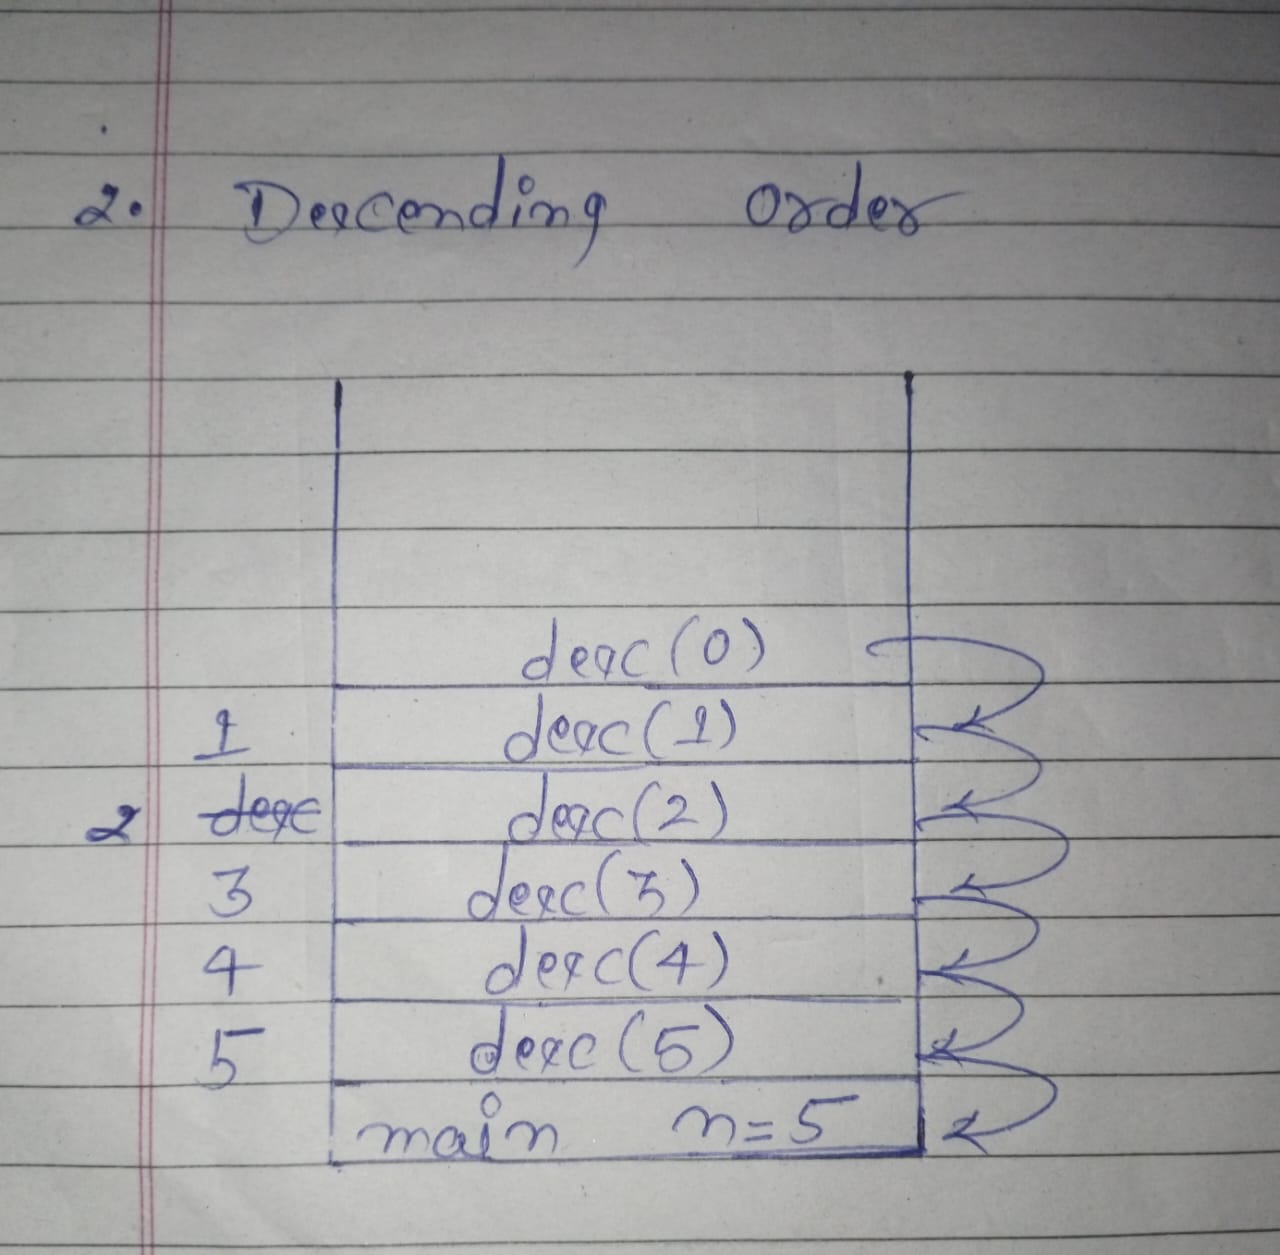 2. Descending Order
desc(0)
1 desc(1)
2 desc desc(2)
3 desc(3)
4 desc(4)
5 desc(5)
main n=5